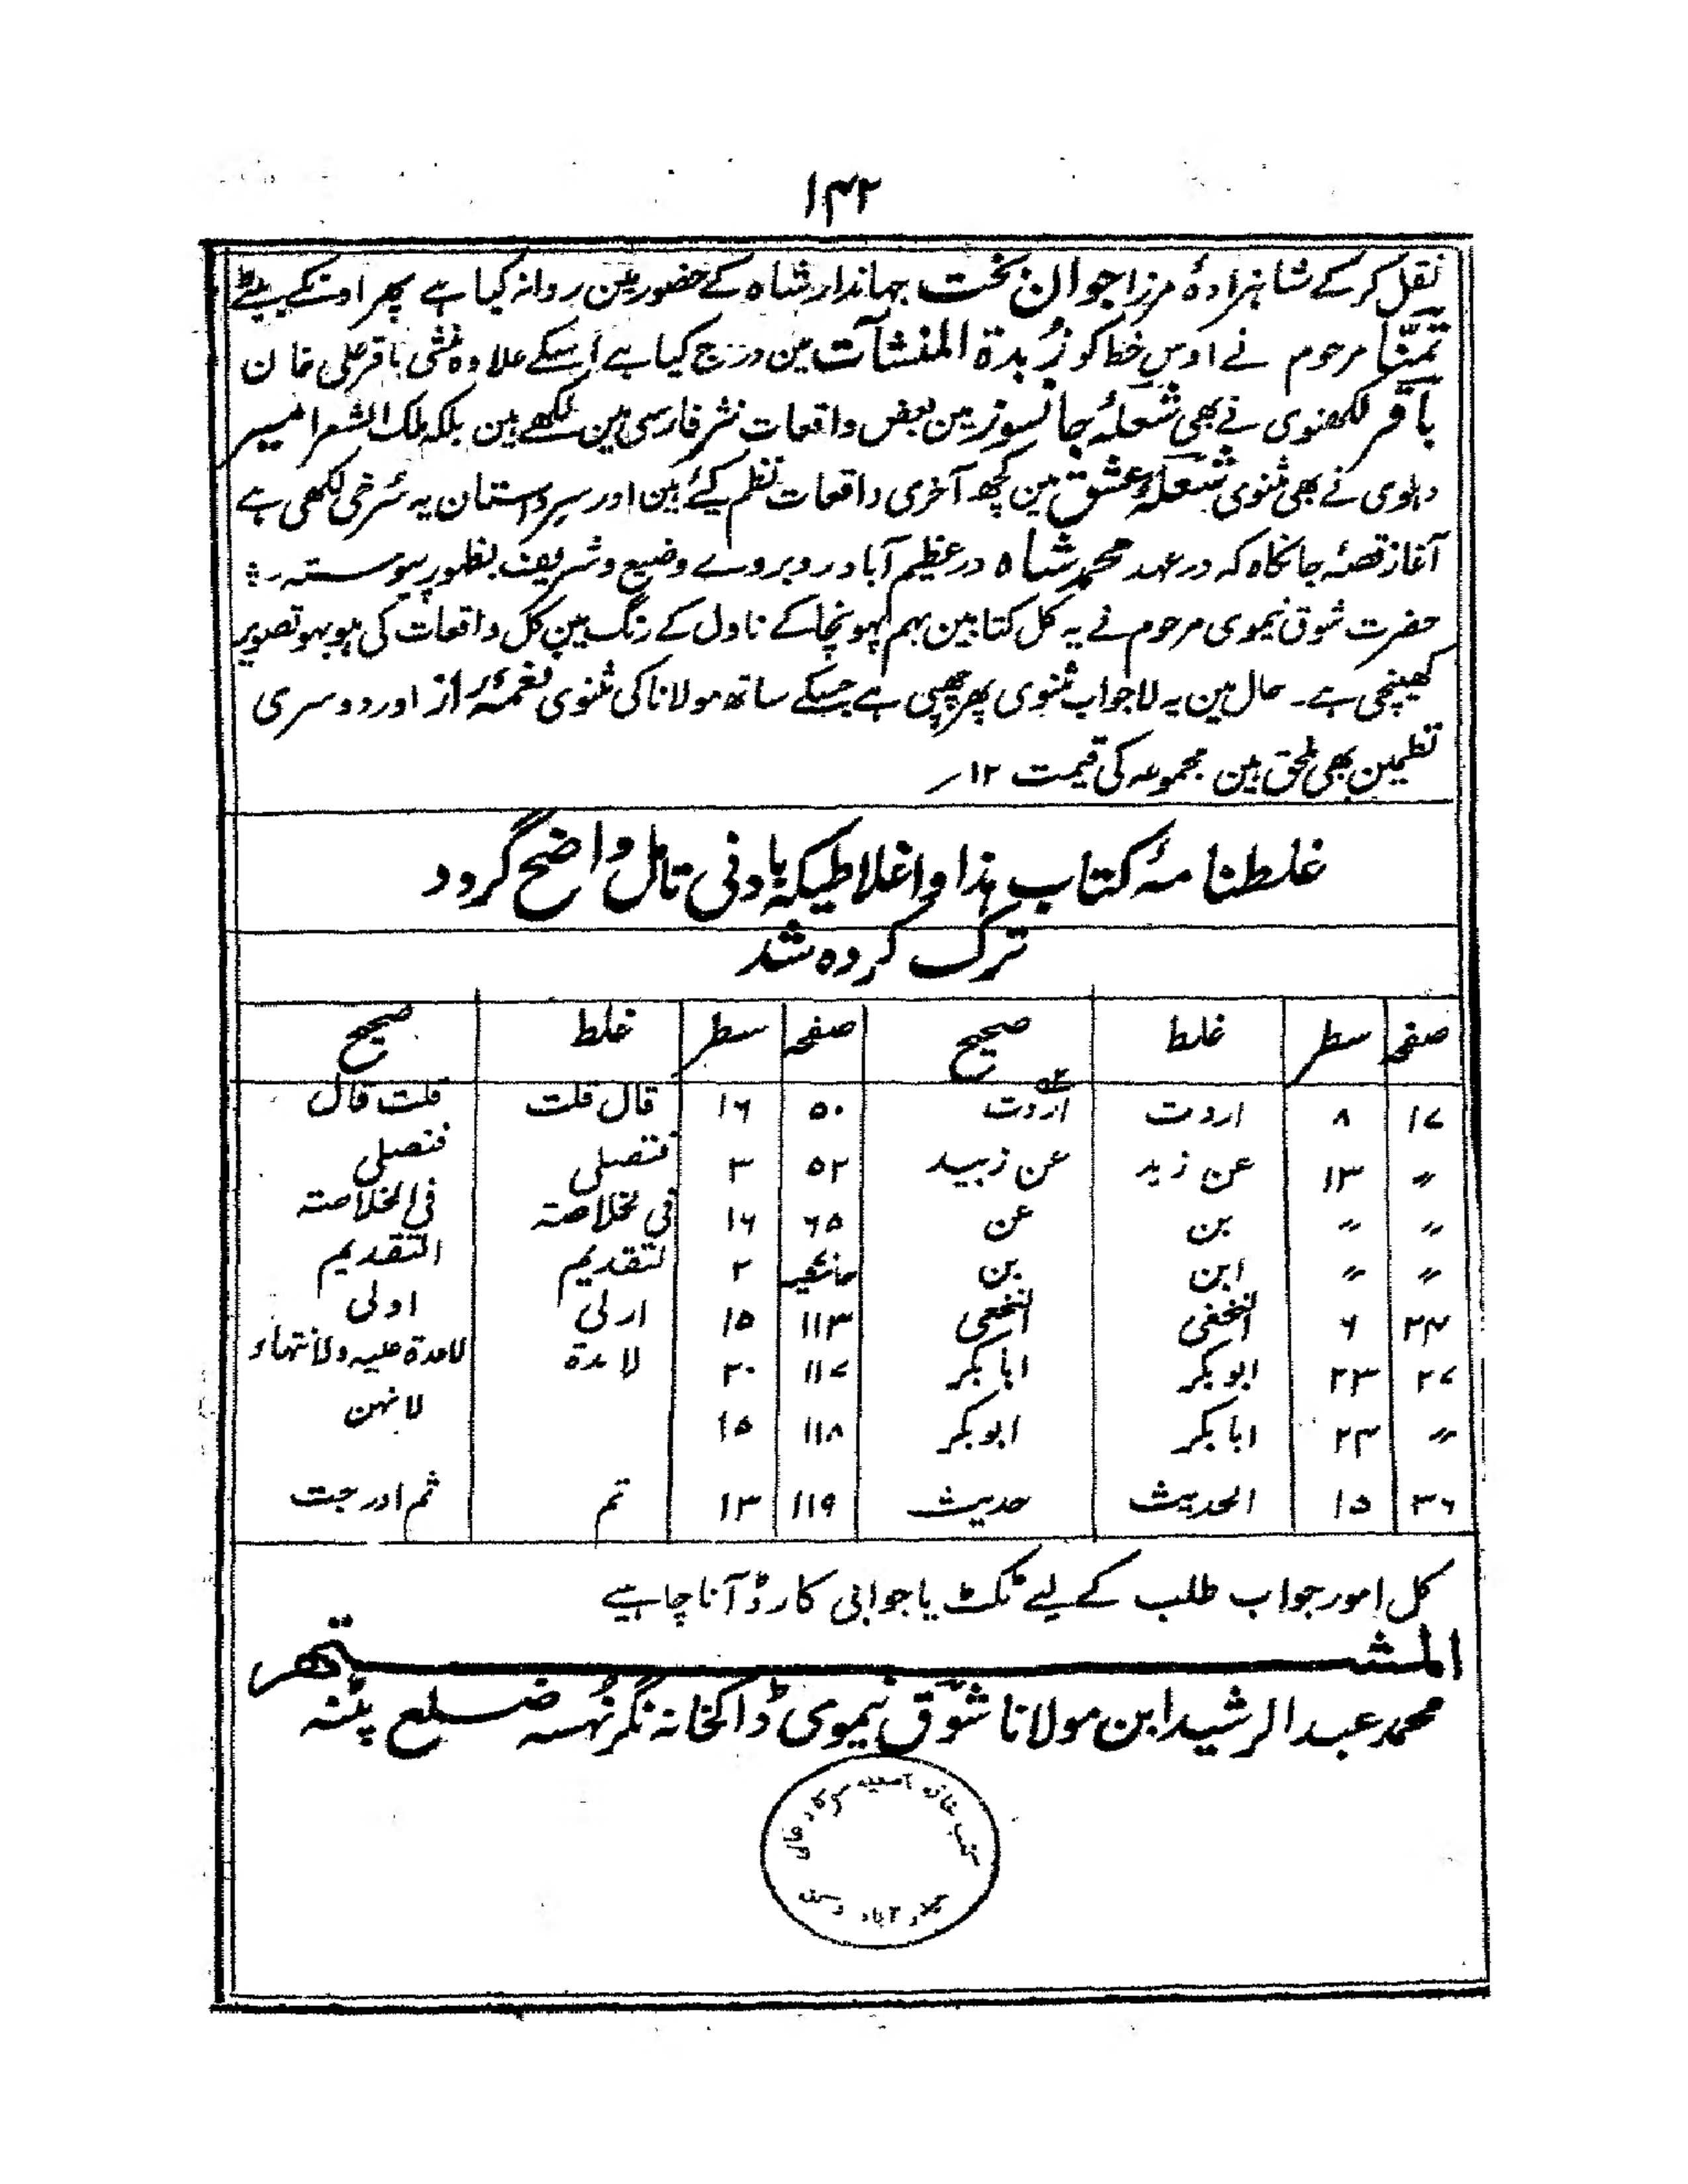 ۱۴۲
نقل کر کے شاہزادۂ مرزا جوان بخت جہاندار شاہ کے حضور مین روانہ کیا ہے پھر اونکے بیٹے
تمنّا مرحوم نے اوس خط کو زُبدۃ المنشآت مین درج کیا ہے اسکے علاوہ منشی باقر علی خان
باقر لکھنوی نے بھی شعلۂ جانسوز مین بعض واقعات نثر فارسی مین لکھے ہین بلکہ ملک الشعرا میر
دہلوی نے بھی مثنوی شعلۂ عشق مین کچھ آخری واقعات نظم کیے ہین اور سر داستان یہ سُرخی لکھی ہے
آغاز قصۂ جانکاہ کہ در عہد محمد شاہ در عظیم آباد روبروے وضیع و شریف بظہور پیوستہ۔
حضرت شوق نیموی مرحوم نے یہ کل کتابین بہم پہونچا کے ناول کے رنگ مین کل واقعات کی ہو بہو تصویر
کھینچی ہے۔ حال مین یہ لاجواب مثنوی پھر چھپی ہے جسکے ساتھ مولانا کی مثنوی نغمۂ راز اور دوسری
نظمین بھی ملحق ہین مجموعہ کی قیمت ۱۲؍
غلطنامۂ کتاب ہذا و اغلاطیکہ بادنی تامل واضح گردد
ترک کردہ شد
صفحہ سطر غلط صحیح صفحہ سطر غلط صحیح
۱۷ ۸ اردت اردت ۵۰ ۱۶ قال قلت قلت قال
〃 ۱۳ عن زید عن زبید ۵۲ ۳ فتصلی فنصلی
〃 〃 بن عن ۶۵ ۱۶ فی لخلاصتہ فی الخلاصتہ
〃 〃 ابن بن حاشیہ ۲ لتقدیم التقدیم
۲۴ ۶ النخفی النخعی ۱۱۳ ۱۵ ارلی اولی
۲۷ ۲۳ ابوبکر ابابکر ۱۱۷ ۲۰ لا عدۃ لاعدۃ علیہ ولانتہاء
〃 ۲۴ ابابکر ابوبکر ۱۱۸ ۱۵ لانہن
۳۶ ۱۵ الحدیث حدیث ۱۱۹ ۱۳ تم ثم ادرجت
کل امور جواب طلب کے لیے ٹکٹ یا جوابی کارڈ آنا چاہیے
المشتہر
محمد عبد الرشید ابن مولانا شوق نیموی ڈاکخانہ نگر نہسہ ضلع پٹنہ
کتب خانہ آصفیہ سرکار عالی
حیدرآباد دکن